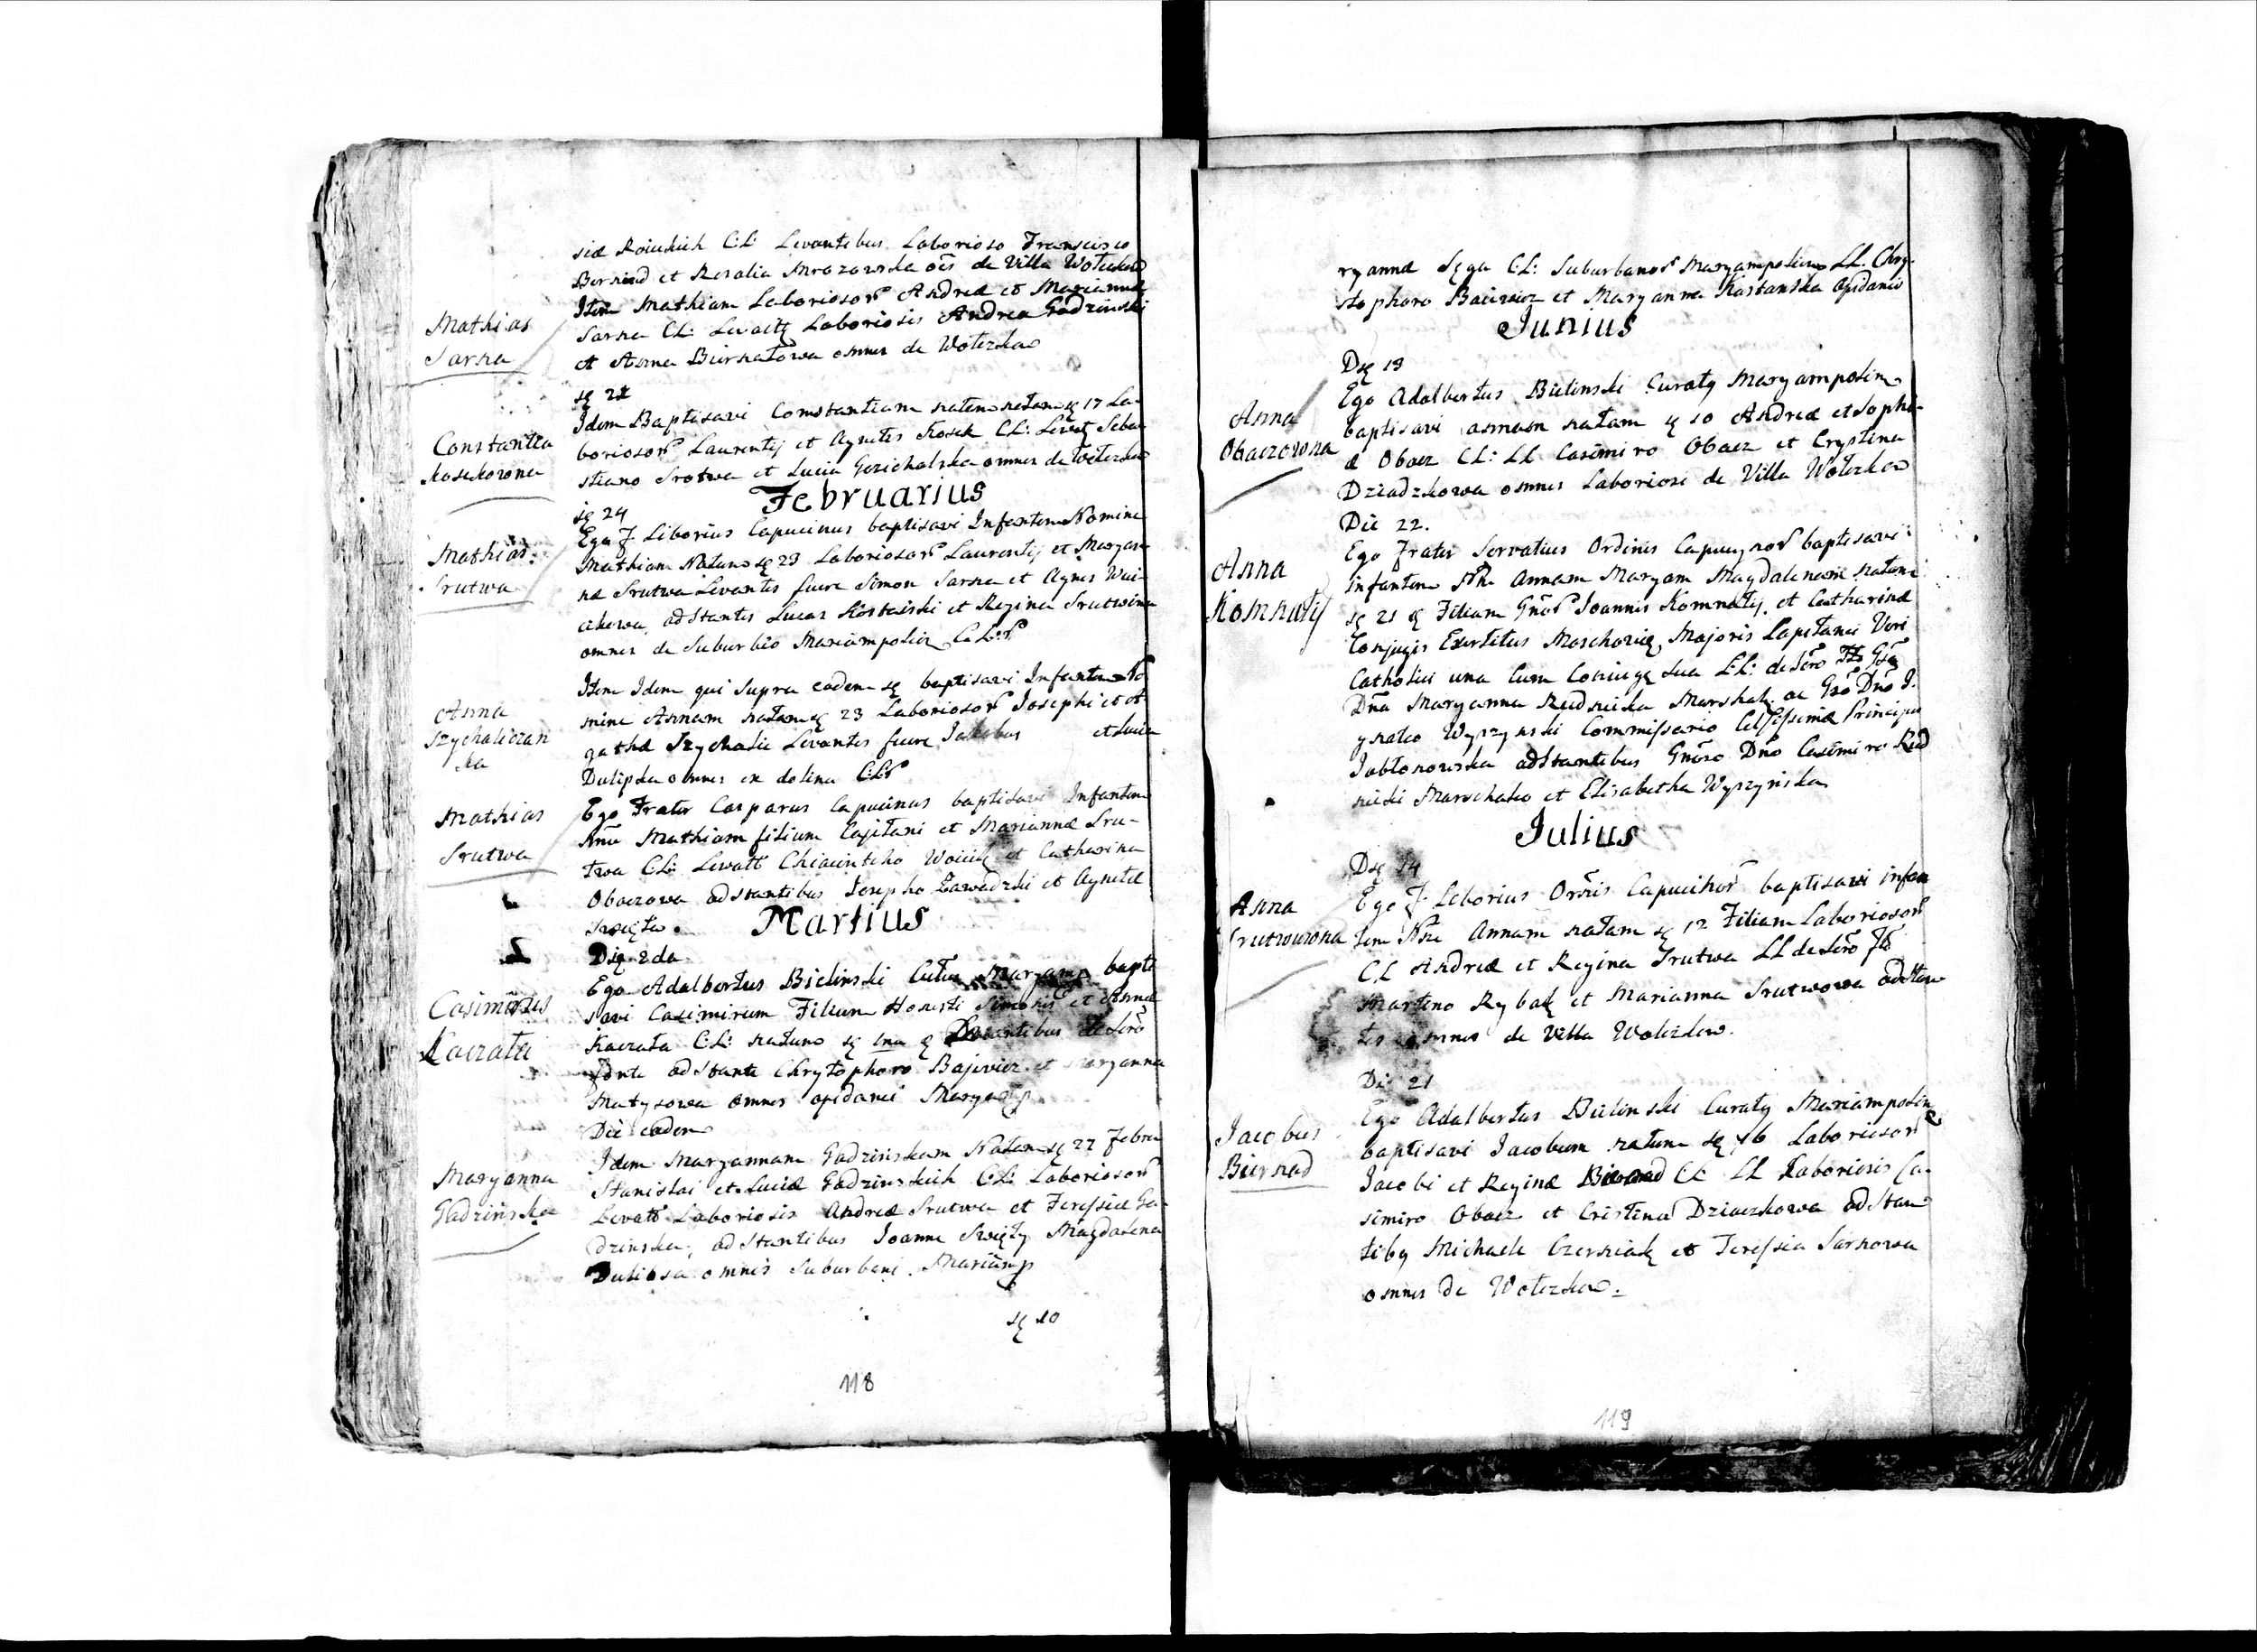 siæ Koiuskich C:L: Levantibus Laborioso Franscisco
Biernad et Rosalia Mrozowska oēs de Villa Wołczkow
Mathias
Sarna
Item Mathiam Laboriosor Andreæ et Mariannæ
Sarna CL: Levaītę Laboriosis Andrea Gadzinski
et Anna Biernatowa omnes de Wołczkow
ję 21
Constantia
Kosekowna
Idem Baptisavi Constantiam natam ę 17 La-
boriosor Laurentij et Agnetis Kosek CL: Levat Seba-
stiano Srotwa et Lucia Gozichalska omnes de Wołczkow
Februarius
ję 24
Mathias
Srutwa
Ego F Liborius Capucinus baptisavi Infantem Nomine
Mathiam Natum ję 23 Laboriosor Laurentij et Maryan-
næ Srutwa Levantes fuere Simon Sarna et Agnes Woi-
akowa, adstantes Lucas et Regina Srutwina
omnes de Suburbio Mariampolia C.L.
Anna
Szychaliczan
ka
Item Idem qui Supra eadem ję baptisavi Infantem No
mine Annam natam ę 23 Laboriosor Josephi et A-
gathæ Szychalic Levantes fuere Jakobus et Lucia
Dulipka omnes ex dolina C:L
Mathias
Srutwa
Ego Frater Casparus Capucinus baptisavi Infantem
Nnē Mathiam filium Cajitani et Mariannæ Sru-
twa CL: Levatt Chiacintcho Woiiık et Catharina
Obaczowa adstantibus Josepho Zawadzki et Agnetæ
Swięta.
Martius
Dię 2da
Casimirus
Kaczata
Ego Adalbertus Bielinski Cutus Maryamp bapti
savi Casimirum Filium Honesti Simonis et Annæ
Kaczata C:L: natum ję 1ma ę Levantibus de Sero
fonte adstante Chrytophoro Bajewicz et Maryanna
Matysowa omnes opidanei Maryamp
Die eadem
Maryanna
Gadzinska
Idem Maryannam Gadzinskam Natam ję 22 Febru
Stanislai et Luciæ Gadzinskich C:L: Laboriosor
Levatt Laboriosis Andreæ Srutwa et Teressiæ Ga-
dzinska, adstantibus Joanne Swięty Magdalena
Dulibsa omnes Suburbani Mariamp
ję 10
118
ryannæ Sęga C:L: Suburbanor Maryampolien LL. Chry-
stophoro Baiewicz et Maryanna Kastanska Opidanis
Junius
Dię 13
Anna
Obaczowna
Ego Adalbertus Bielinski Curatę Maryampolien
baptisavi annam natam ę 10 Andreæ et Sophi-
æ Obacz CL: LL Casimiro Obacz et Crystina
Dziadzkowa omnes Laboriosi de Villa Wołczkow
Die 22.
Anna
Komnatij
Ego Frater Servatius Ordinis Capucynor baptisavi
infantem Nne Annam Maryam Magdalenam natam
ję 21 ę Filiam Gnor Joannis Komnatij et Catharinæ
Conjugis Exertitus Moschovię Majoris Capitanei Viri
Catholici una Cum Coniuge Sua L:L: de Sero Gsę
Dna Maryanna Rudnicka Marshalk ac Gso Dno I-
gnatio Wyszynski Commissario Celsissimæ Principis
Jabłonowska adstantibus Gnoso Dno Casimiro Rud
nicki Marschalco et Elisabetha Wyszynska
Julius
Dię 14
Anna
Srutwuwna
Ego F. Leborius Ordis Capucinor baptisavi infan
tem Nne Annam natam ję 12 Filiam Laboriosor
CL Andreæ et Regina Srutwa LL de Sero
Marteno Rybak et Marianna Srutwowa adstan
tes omnes de Vella Wołczkow.
Die 21
Jacobus
Biernad
Ego Adalbertus Bielinski Curatę Mariampolien
baptisavi Jacobum natum ję 16 Laboriosor
Jacobi et Reginæ Biernad CL LL Laboriosis Ca-
simiro Obacz et Cristina Dziaczkowa adstan
tibę Michaele Czerniak et Teressia Sarnowa
omnes de Wołczkow.
119